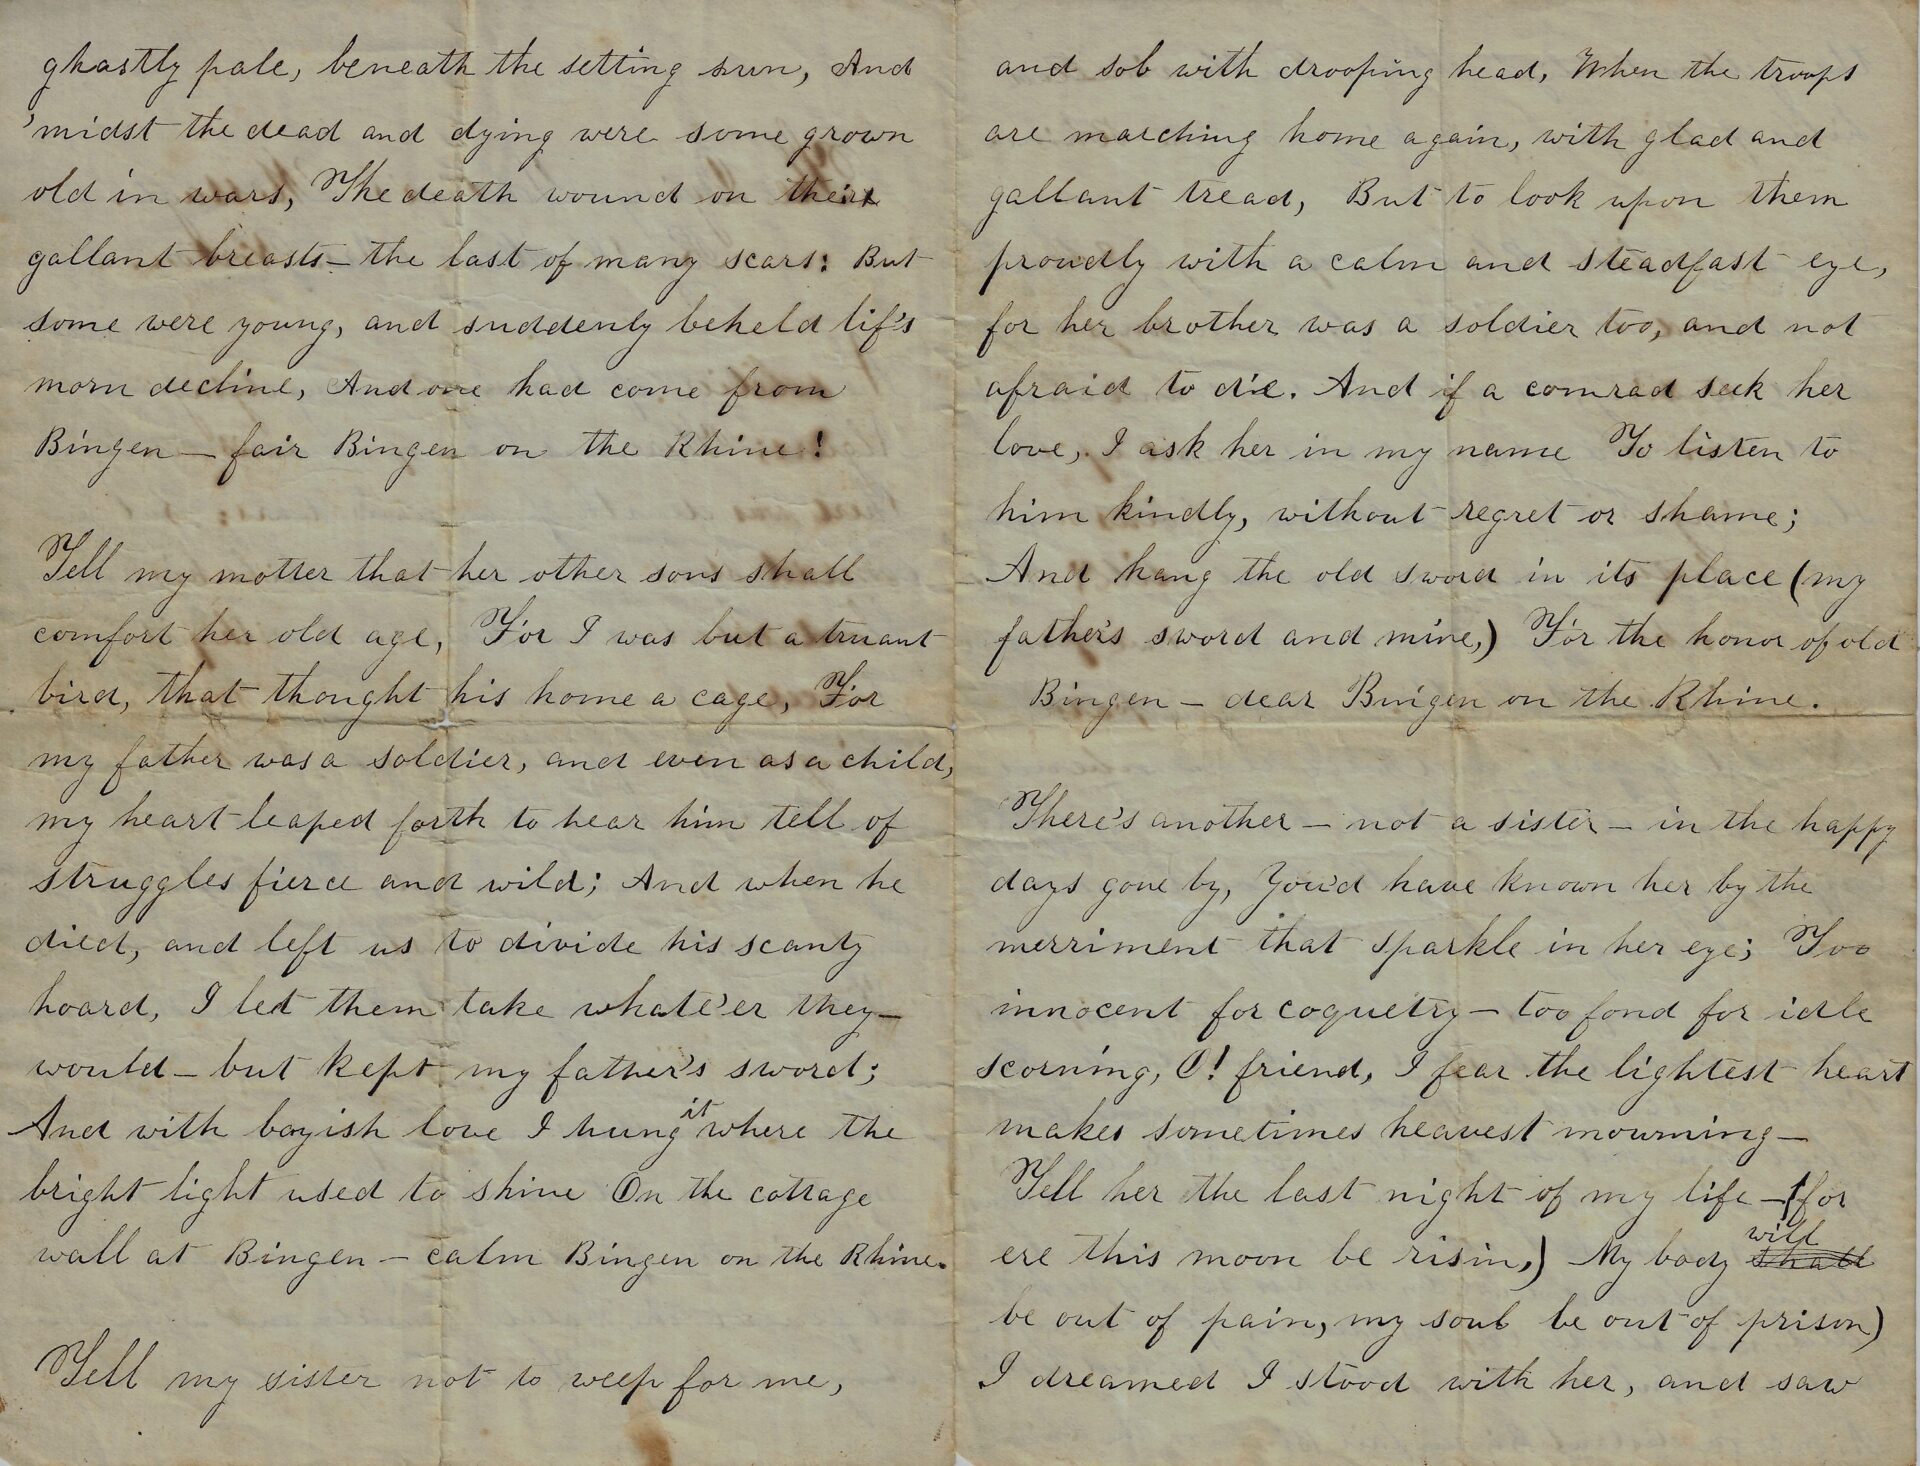 ghastly pale, beneath the setting sun, And
'midst the dead and dying were some grown
old in wars, The death wound on their
gallant breasts – the last of many scars: But
some were young, and suddenly beheld lif's
morn decline, And one had come from
Bingen – fair Bingen on the Rhine!
Tell my motter that her other sons shall
comfort her old age, For I was but a truant
bird, that thought his home a cage, For
my father was a soldier, and even as a child,
my heart leaped forth to hear him tell of
struggles fierce and wild; And when he
died, and left us to divide his scanty
hoard, I let them take whate'er they –
would – but kept my father's sword;
And with boyish love I hung it where the
bright light used to shine On the cottage
wall at Bingen – calm Bingen on the Rhine.
Tell my sister not to weep for me,
and sob with drooping head, When the troops
are marching home again, with glad and
gallant tread, But to look upon them
proudly with a calm and steadfast eye,
for her brother was a soldier too, and not
afraid to die. And if a comrad seek her
love, I ask her in my name To listen to
him kindly, without regret or shame;
And hang the old sword in its place (my
father's sword and mine,) For the honor of old
Bingen – dear Bingen on the Rhine.
There's another – not a sister – in the happy
days gone by, You'd have known her by the
merriment that sparkle in her eye; Too
innocent for coquetry – too fond for idle
scorning, O! friend, I fear the lightest heart
makes sometimes heavest mourning –
Tell her the last night of my life – (for
ere this moon be risin,) My body shall will
be out of pain, my soul be out of prison)
I dreamed I stood with her, and saw